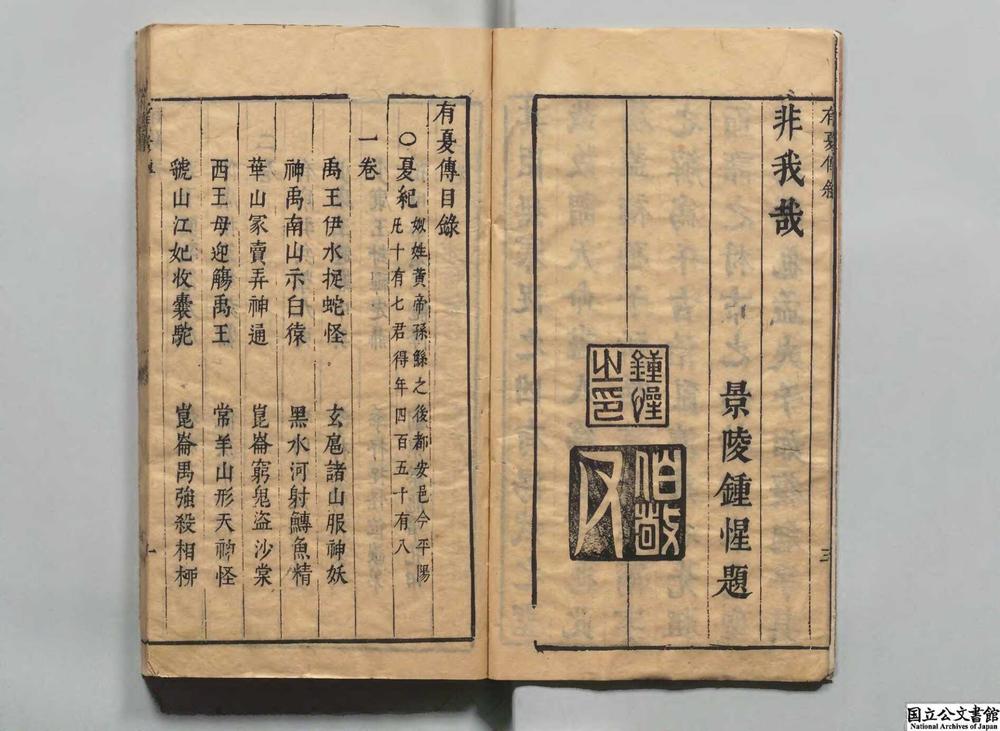 非我哉
景陵鍾惺題
鍾惺之印
伯敬
有夏傳目錄
○夏紀 姒姓黃帝孫鯀之後都安邑今平陽
凡十有七君得年四百五十有八
一卷
禹王伊水捉蛇怪 玄扈諸山服神妖
神禹南山示白猿 黑水河射鱄魚精
華山冢賣弄神通 崑崙窮鬼盜沙棠
西王母迎觴禹王 常羊山形天神怪
號山江妃收橐駝 崑崙禺強殺相桺
有夏傳敘
三
一
国立公文書館
National Archives of Japan